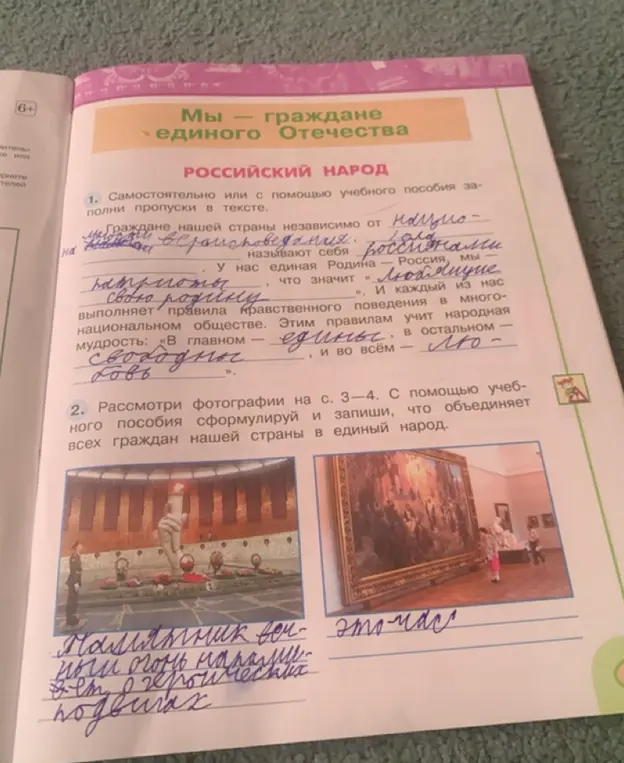 6+
Мы — граждане
единого Отечества
РОССИЙСКИЙ НАРОД
1. Самостоятельно или с помощью учебного пособия за-
полни пропуски в тексте.
Граждане нашей страны независимо от нацио-
на вероисповедания,
называют себя россиянами
. У нас единая Родина — Россия, мы —
патриоты, что значит „любящие
свою родину". И каждый из нас
выполняет правила нравственного поведения в много-
национальном обществе. Этим правилам учит народная
мудрость: „В главном — едины, в остальном —
свободны, и во всём — лю-
бовь".
2. Рассмотри фотографии на с. 3—4. С помощью учеб-
ного пособия сформулируй и запиши, что объединяет
всех граждан нашей страны в единый народ.
Памятник веч-
ный огонь напоми-
ет о героических
подвигах
это час